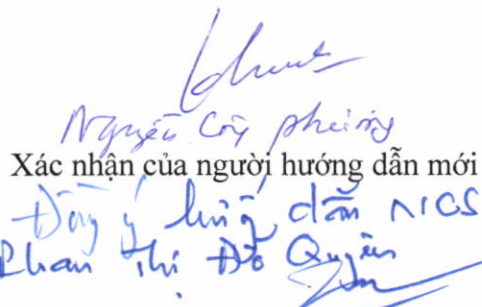 Nguyễn Công Phương
Xác nhận của người hướng dẫn mới
Đồng ý hướng dẫn NCS
Phan Thị Đỗ Quyên